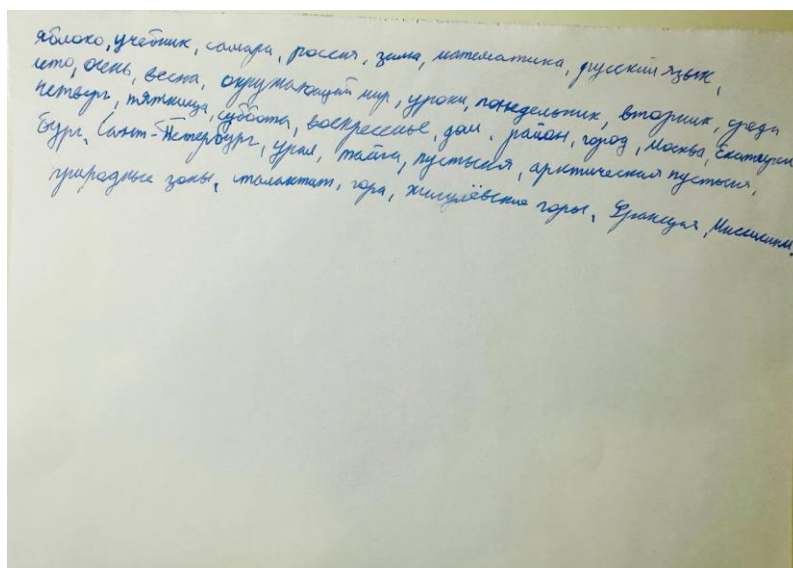 яблоко, учебник, самара, россия, зима, математика, русский язык,
лето, очень, весна, окружающий мир, уроки, понедельник, вторник, среда
четверг, пятница, суббота, воскресенье, дом, район, город, Москва, Екатерин
бург, Санкт-Петербург, урал, тайга, пустыня, арктическая пустыня,
природные зоны, сталактит, гора, жигулёвские горы, Франция,